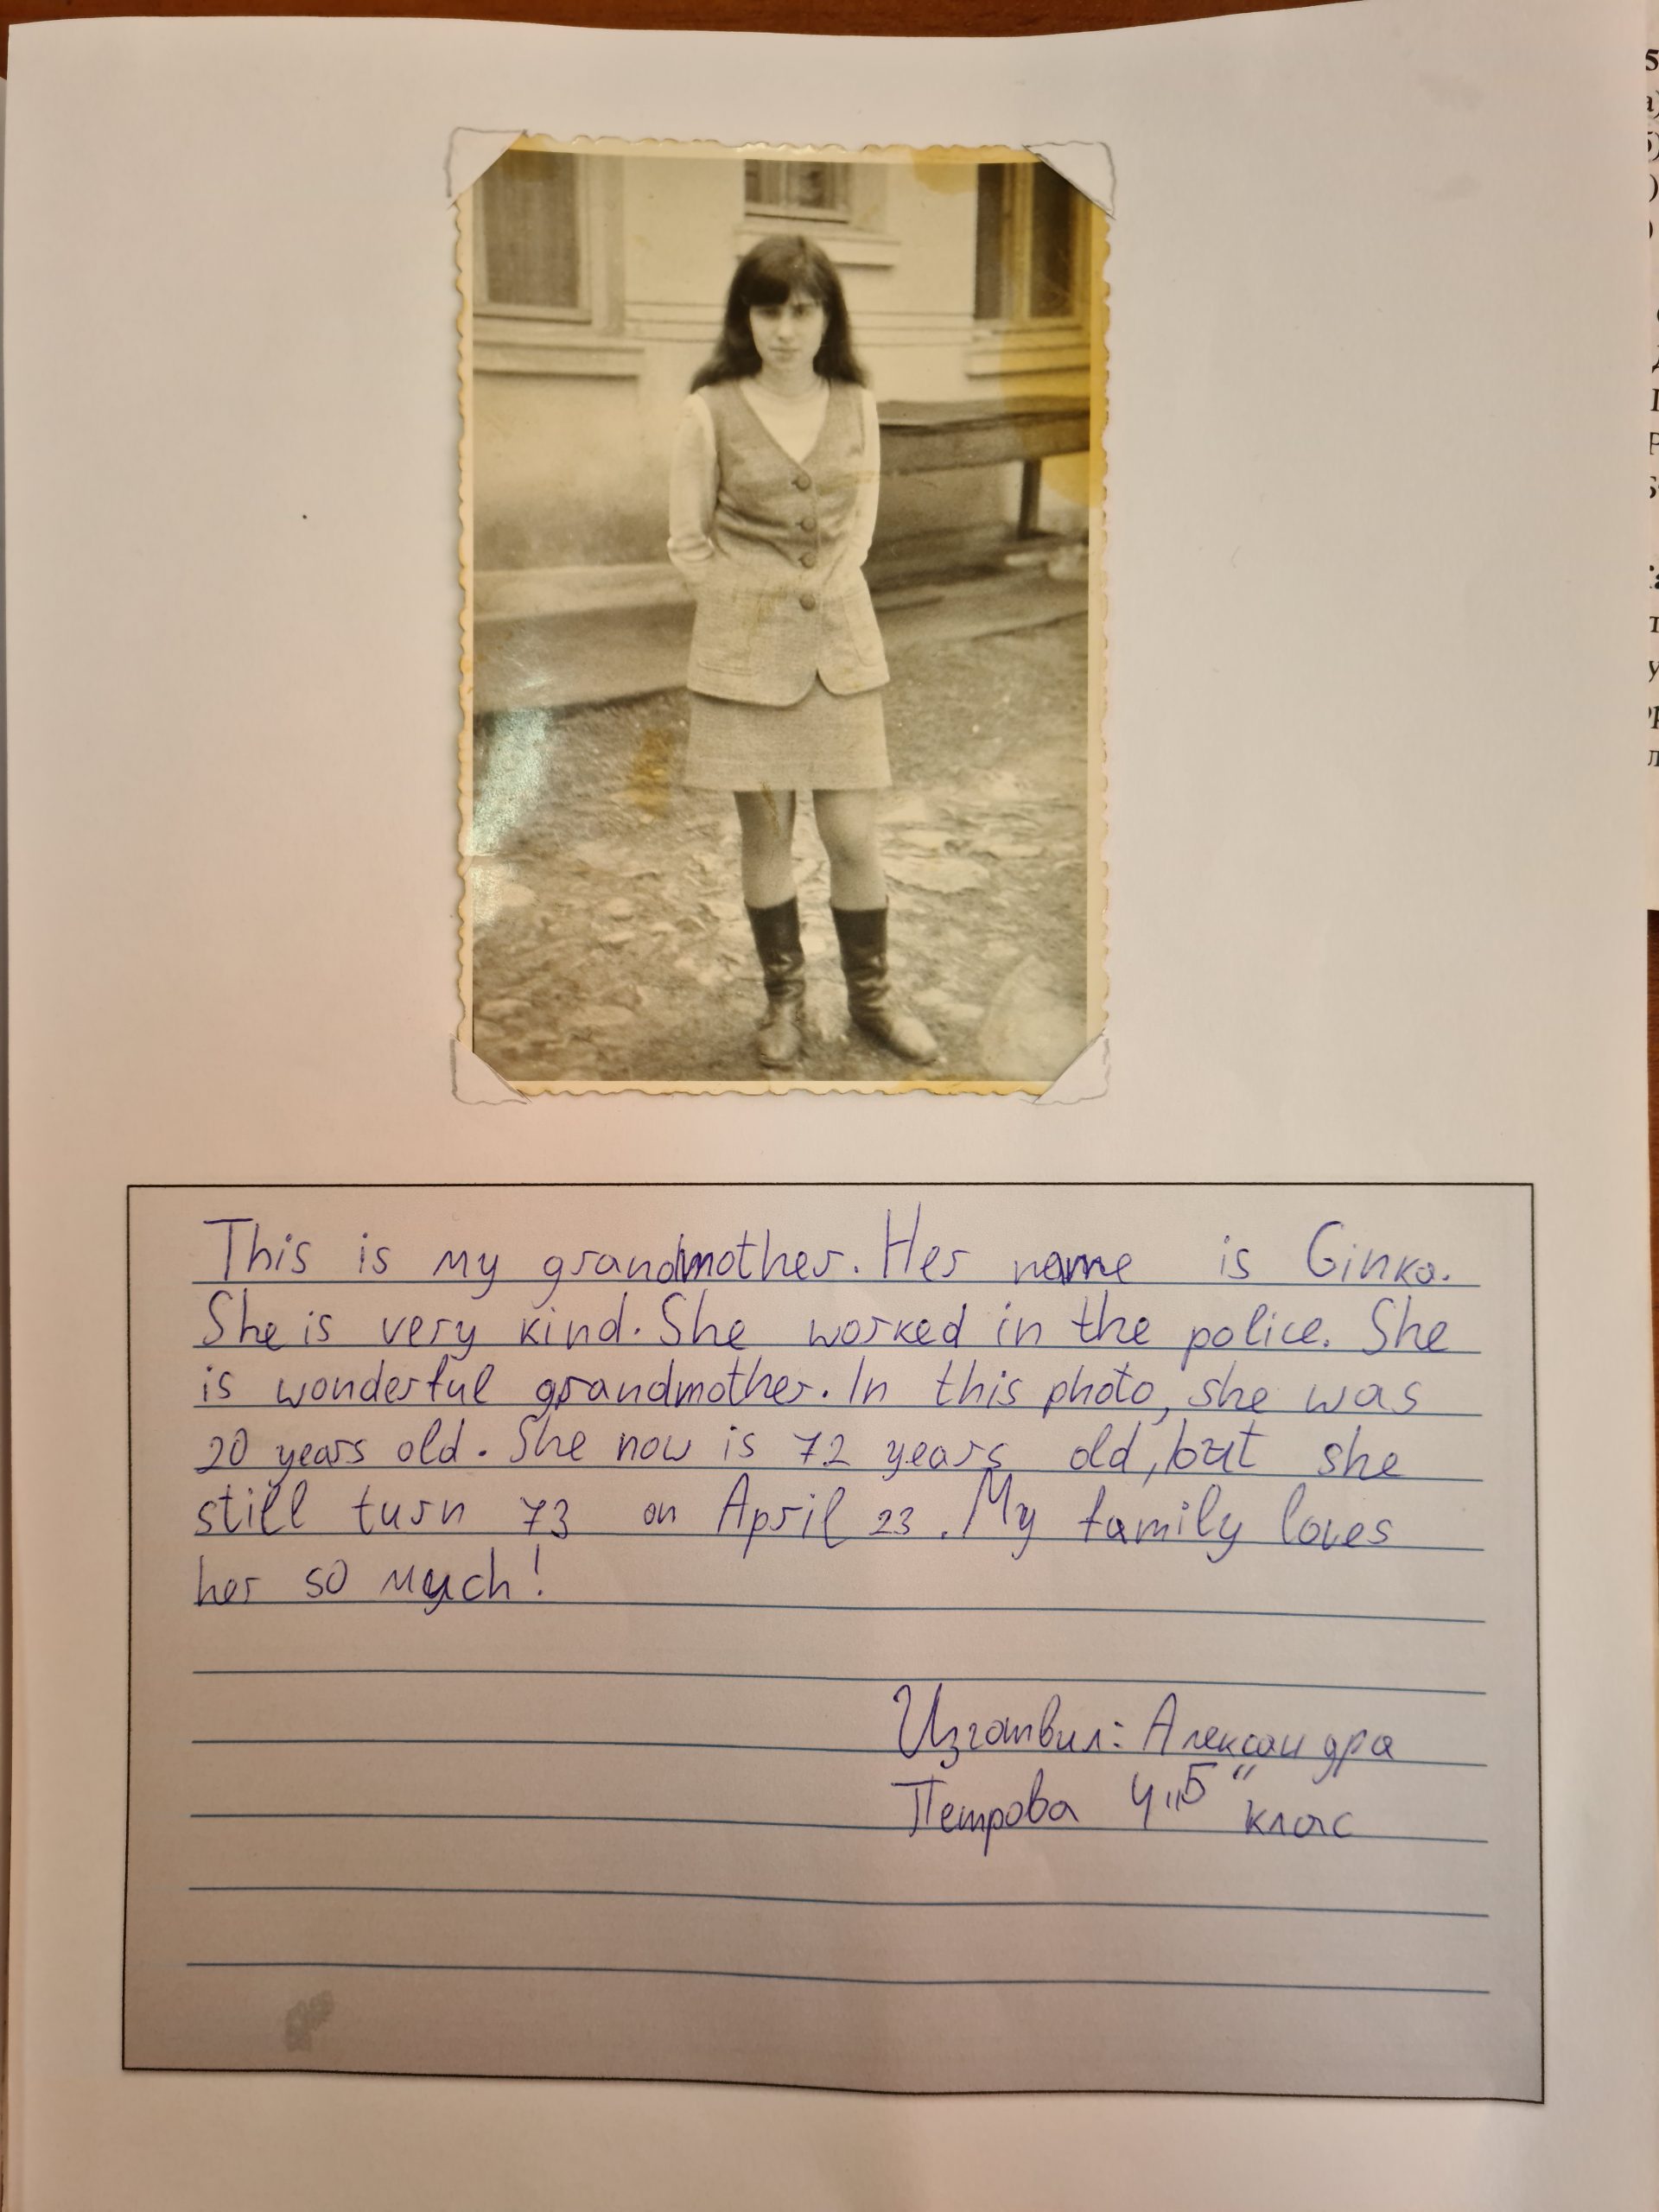 This is my grandmother. Her name is Ginka.
She is very kind. She worked in the police. She
is wonderful grandmother. In this photo, she was
20 years old. She now is 72 years old, but she
still turn 73 on April 23. My family loves
her so much!
Изготвил: Александра
Петрова 4 „Б“ клас